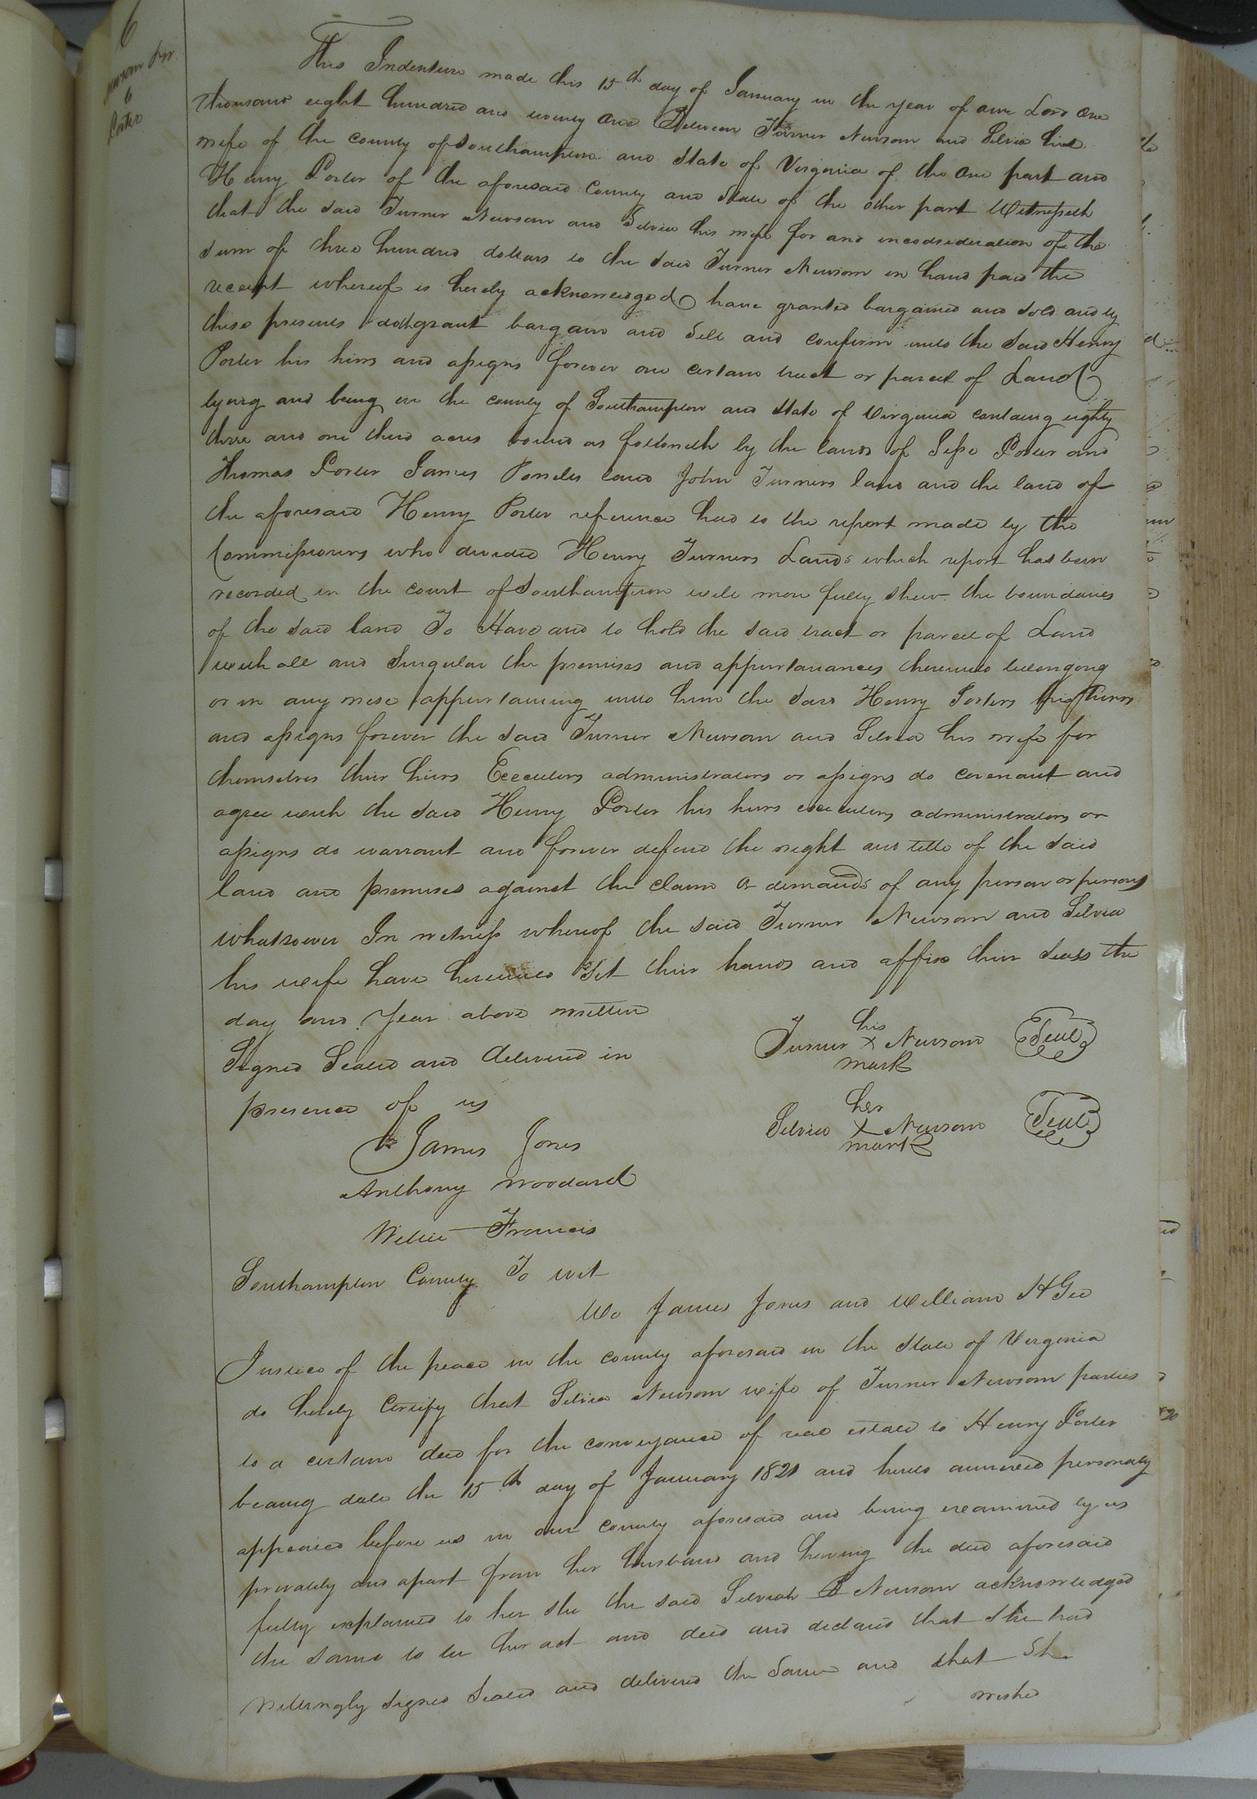 6
Newsom &c
to
Porter
This Indenture made this 15th day of January in the year of our Lord one
thousand eight hundred and twenty one Between Turner Newsom and Silvia his
wife of the county of Southampton and State of Virginia of the one part and
Henry Porter of the aforesaid County and State of the other part Witnesseth
that the said Turner Newsom and Silvia his wife for and inconsideration of the
sum of three hundred dollars to the said Turner Newsom in hand paid the
receipt whereof is hereby acknowledged have granted bargained and sold and by
these presents doth grant bargain and Sell and confirm unto the said Henry
Porter his hirs and assigns forever one certain tract or parcel of Land
lying and being in the county of Southampton and State of Virginia containg eighty
three and one third acres bound as followeth by the lands of Jesse Porter and
Thomas Porter James land John Turners land and the land of
the aforesaid Henry Porter reference had to the report made by the
Commissioners who divided Henry Turners Lands which report has been
recorded in the court of Southampton will more fully shew the boundaries
of the said land To Have and to hold the said tract or parcel of Land
with all and Singular the premises and appurtanances thereunto belongong
or in any wise appurtaining unto him the said Henry Porters his heirs
and assigns forever the said Turner Newsom and Silvia his wife for
themselves their hirs Executors administrators or assigns do covenant and
agree with the said Henry Porter his hirs executors administrators or
assigns do warrant and forever defend the right and title of the said
land and premises against the claims or demands of any person or persons
whatsoever In witness whereof the said Turner Newsom and Silvia
his wife have hereunto Set their hands and affixd their seals the
day and year above written
Signed Sealed and delivered in
presence of us
his
Turner X Newsom Seal
mark
her
Silvia X Newsom Seal
mark
James Jones
Anthony Woodard
Willie Francis
Southampton County To wit
We James Jones and William H Gee
Justice of the peace in the county aforesaid in the State of Virginia
do hereby Certify that Silvia Newsom wife of Turner Newsom parties
to a certain deed for the conveyance of real estate to Henry Porter
bearing date the 15th day of January 1821 and hereto annexed personaly
appeared before us in our county aforesaid and being examined by us
privately and apart from her husband and having the deed aforesaid
fully explained to her she the said Silviah Newsom acknowledged
the same to be her act and deed and declared that She had
willingly Signed Sealed and delivered the Same and that Sh
wished